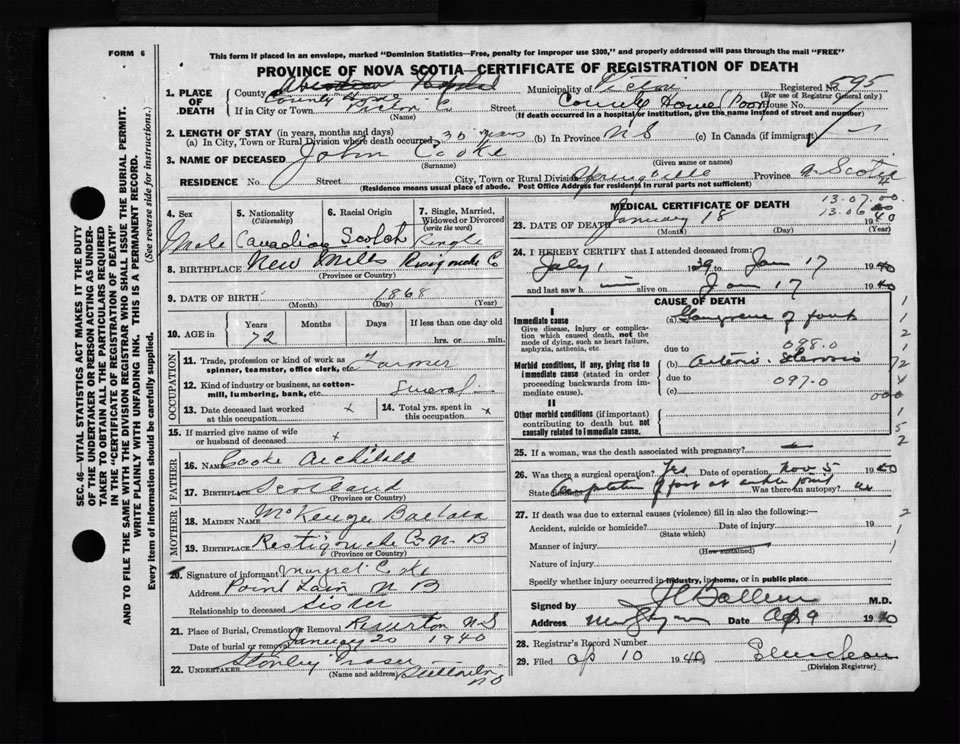 FORM 6
This form if placed in an envelope, marked "Dominion Statistics—Free, penalty for improper use $300," and properly addressed will pass through the mail "FREE"
PROVINCE OF NOVA SCOTIA—CERTIFICATE OF REGISTRATION OF DEATH
SEC. 46—VITAL STATISTICS ACT MAKES IT THE DUTY
OF THE UNDERTAKER OR PERSON ACTING AS UNDER-
TAKER TO OBTAIN ALL THE PARTICULARS REQUIRED
IN THE "CERTIFICATE OF REGISTRATION OF DEATH"
AND TO FILE THE SAME WITH THE DIVISION REGISTRAR WHO SHALL ISSUE THE BURIAL PERMIT.
WRITE PLAINLY WITH UNFADING INK. THIS IS A PERMANENT RECORD.
Every item of information should be carefully supplied. (See reverse side for instructions.)
1. PLACE OF DEATH County Municipality of Pictou Registered No. 595
(For use of Registrar General only)
If in City or Town Street County Home (Poor House No.
(Name) (If death occurred in a hospital or institution, give the name instead of street and number)
2. LENGTH OF STAY (in years, months and days)
(a) In City, Town or Rural Division where death occurred 30 years (b) In Province N S (c) In Canada (if immigrant)
3. NAME OF DECEASED John Cooke
(Surname) (Given name or names)
RESIDENCE No. Street City, Town or Rural Division Springville Province N Scotia
(Residence means usual place of abode. Post Office Address for residents in rural parts not sufficient)
4. Sex 5. Nationality (Citizenship) 6. Racial Origin 7. Single, Married, Widowed or Divorced (write the word)
Male Canadian Scotch Single
8. BIRTHPLACE New Mills Restigouche Co
(Province or Country)
9. DATE OF BIRTH 1868
(Month) (Day) (Year)
10. AGE in Years Months Days If less than one day old
72 hrs. or min.
OCCUPATION
11. Trade, profession or kind of work as spinner, teamster, office clerk, etc. Farmer
12. Kind of industry or business, as cotton-mill, lumbering, bank, etc. General
13. Date deceased last worked at this occupation x 14. Total yrs. spent in this occupation x
15. If married give name of wife or husband of deceased x
FATHER
16. NAME Cooke Archibald
17. BIRTHPLACE Scotland
(Province or Country)
MOTHER
18. MAIDEN NAME McKenzie Barbara
19. BIRTHPLACE Restigouche Co N B
(Province or Country)
20. Signature of informant Margret Cooke
Address Point La N B
Relationship to deceased Sister
21. Place of Burial, Cremation or Removal Riverton N S
Date of burial or removal January 20 1940
22. UNDERTAKER Stanley Fraser
(Name and address)
MEDICAL CERTIFICATE OF DEATH
13.07.00
13.06
23. DATE OF DEATH January 18 1940
(Month) (Day) (Year)
24. I HEREBY CERTIFY that I attended deceased from:
July 1 1939 Jan 17 1940
and last saw him alive on Jan 17 1940
CAUSE OF DEATH
I
Immediate cause (a) Gangrene of foot
Give disease, injury or complication which caused death, not the mode of dying, such as heart failure, asphyxia, asthenia, etc.
098.0
due to
Morbid conditions, if any, giving rise to immediate cause (stated in order proceeding backwards from immediate cause). (b) Arterio Sclerosis
due to 097.0
(c)
II
Other morbid conditions (if important) contributing to death but not causally related to immediate cause.
25. If a woman, was the death associated with pregnancy?
26. Was there a surgical operation? Yes Date of operation Nov 5 1940
State findings Amputation of foot at ankle joint Was there an autopsy?
27. If death was due to external causes (violence) fill in also the following:—
Accident, suicide or homicide? Date of injury 19
(State which)
Manner of injury
(How sustained)
Nature of injury
Specify whether injury occurred in industry, in home, or in public place
Signed by M.D.
Address Date Ap 9 1940
28. Registrar's Record Number
29. Filed Ap 10 1940
(Division Registrar)